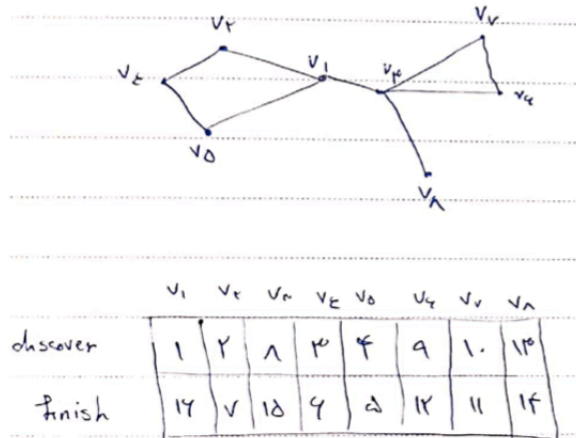 V۲ V۷
V۴ V۱ V۳ V۶
V۵
V۸
V۱ V۲ V۳ V۴ V۵ V۶ V۷ V۸
discover ۱ ۲ ۸ ۳ ۴ ۹ ۱۰ ۱۳
finish ۱۶ ۷ ۱۵ ۶ ۵ ۱۲ ۱۱ ۱۴